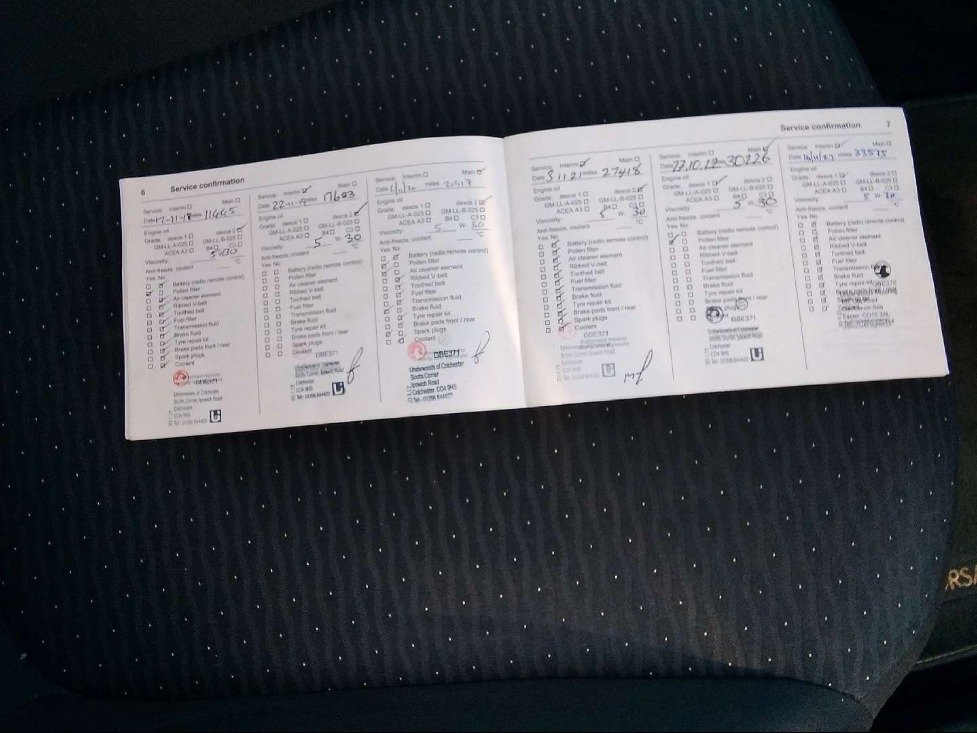 6 Service confirmation
Service Interim Main
Date 17-11-18 miles 11465
Engine oil
Grade dexos 1 dexos 2
GM-LL-A-025 GM-LL-B-025
ACEA A3 B4 C3
Viscosity 5 W 30
Anti-freeze, coolant °C
Yes No
Battery (radio remote control)
Pollen filter
Air cleaner element
Ribbed V-belt
Toothed belt
Fuel filter
Transmission fluid
Brake fluid
Tyre repair kit
Brake pads front / rear
Spark plugs
Coolant
GBE371
Underwoods of Colchester
Scotts Corner, Ipswich Road
Colchester
CO4 9HS
Service Interim Main
Date 22-11-19 miles 17683
Engine oil
Grade dexos 1 dexos 2
GM-LL-A-025 GM-LL-B-025
ACEA A3 B4 C3
Viscosity 5 W 30
Anti-freeze, coolant °C
Yes No
Battery (radio remote control)
Pollen filter
Air cleaner element
Ribbed V-belt
Toothed belt
Fuel filter
Transmission fluid
Brake fluid
Tyre repair kit
Brake pads front / rear
Spark plugs
Coolant
GBE371
Colchester
CO4 9HS
Service Interim Main
Date miles 21517
Engine oil
Grade dexos 1 dexos 2
GM-LL-A-025 GM-LL-B-025
ACEA A3 B4 C3
Viscosity 5 W 30
Anti-freeze, coolant °C
Yes No
Battery (radio remote control)
Pollen filter
Air cleaner element
Ribbed V-belt
Toothed belt
Fuel filter
Transmission fluid
Brake fluid
Tyre repair kit
Brake pads front / rear
Spark plugs
Coolant
GBE371
Underwoods of Colchester
Scotts Corner
Ipswich Road
Colchester CO4 9HS
Service confirmation 7
Service Interim Main
Date 3.11.21 miles 27418
Engine oil
Grade dexos 1 dexos 2
GM-LL-A-025 GM-LL-B-025
ACEA A3 B4 C3
Viscosity 5 W 30
Anti-freeze, coolant °C
Yes No
Battery (radio remote control)
Pollen filter
Air cleaner element
Ribbed V-belt
Toothed belt
Fuel filter
Transmission fluid
Brake fluid
Tyre repair kit
Brake pads front / rear
Spark plugs
Coolant
Service Interim Main
Date miles 30226
Engine oil
Grade dexos 1 dexos 2
GM-LL-A-025 GM-LL-B-025
ACEA A3 B4 C3
Viscosity 5 W 30
Anti-freeze, coolant °C
Yes No
Battery (radio remote control)
Pollen filter
Air cleaner element
Ribbed V-belt
Toothed belt
Fuel filter
Transmission fluid
Brake fluid
Tyre repair kit
Brake pads front / rear
GBE371
Service Interim Main
Date 16/11/23 miles 33575
Engine oil
Grade dexos 1 dexos 2
GM-LL-A-025 GM-LL-B-025
ACEA A3 B4 C3
Viscosity 5 W 30
Anti-freeze, coolant °C
Yes No
Battery (radio remote control)
Pollen filter
Air cleaner element
Ribbed V-belt
Toothed belt
Fuel filter
Transmission fluid
Brake fluid
Tyre repair kit